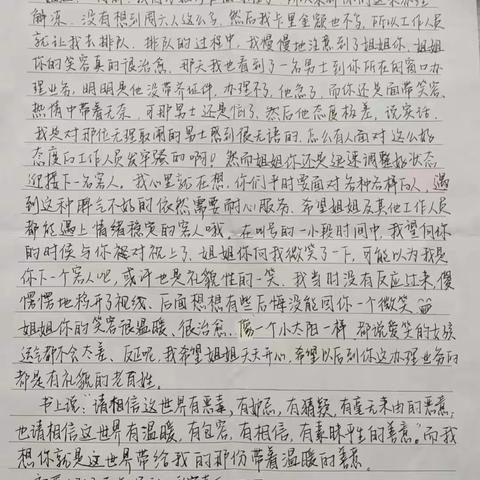 解冻。没有想到周六人这么多,然后我卡里金额也不多,所以工作人员
就让我去排队。排队的过程中,我慢慢地注意到了姐姐你、姐姐
你的笑容真的很治愈。那天我也看到了一名男士到你所在的窗口办
理业务,明明是他没带齐证件,办理不了,他急了,而你还是面带笑容、
热情中带着无奈,可那男士还是恼了,然后他态度极差,说客话,
我是对那位无理取闹的男士感到很无语的,怎么有人面对这么好
态度的工作人员发牢骚的啊!然而姐姐你还是迅速调整好状态
迎接下一名客人。我心里就在想,你们平时要面对各种各样的人,遇
到这种脾气不好的依然需要耐心服务、希望姐姐及其他工作人员
都能遇上情绪稳定的客人哦。在叫号的一小段时间中,我望向你
的时候与你视对视上了,姐姐你向我微笑了一下,可能以为我是
你下一个客人吧,或许也是礼貌性的一笑、我当时没有反应过来,傻
愣愣地移开了视线、后面想想有些后悔没能回你一个微笑
姐姐你的笑容很温暖、很治愈,像一个小太阳一样 都说爱笑的女孩
运气都不会太差、反正呢,我希望姐姐天天开心,希望以后到你这办理业务的
都是有礼貌的老百姓。
书上说:“请相信这世界有恶毒,有妒忌,有猜疑,有莫无来由的恶意,
也请相信这世界有温暖,有包容,有相信,有素昧平生的善意。”而我
想你就是这世界带给我的那份带着温暖的善意。